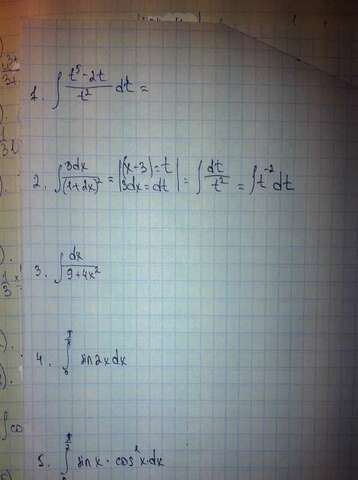 1. ∫ (t⁵ - 2t)/t² dt =
2. ∫ 3dx/(1+2x)² = |(x-3)=t 3dx=dt| = ∫ dt/t² = ∫ t⁻² dt
3. ∫ dx/(9+4x²)
4. ∫ sin2xdx
5. ∫ sinx · cos²x·dx